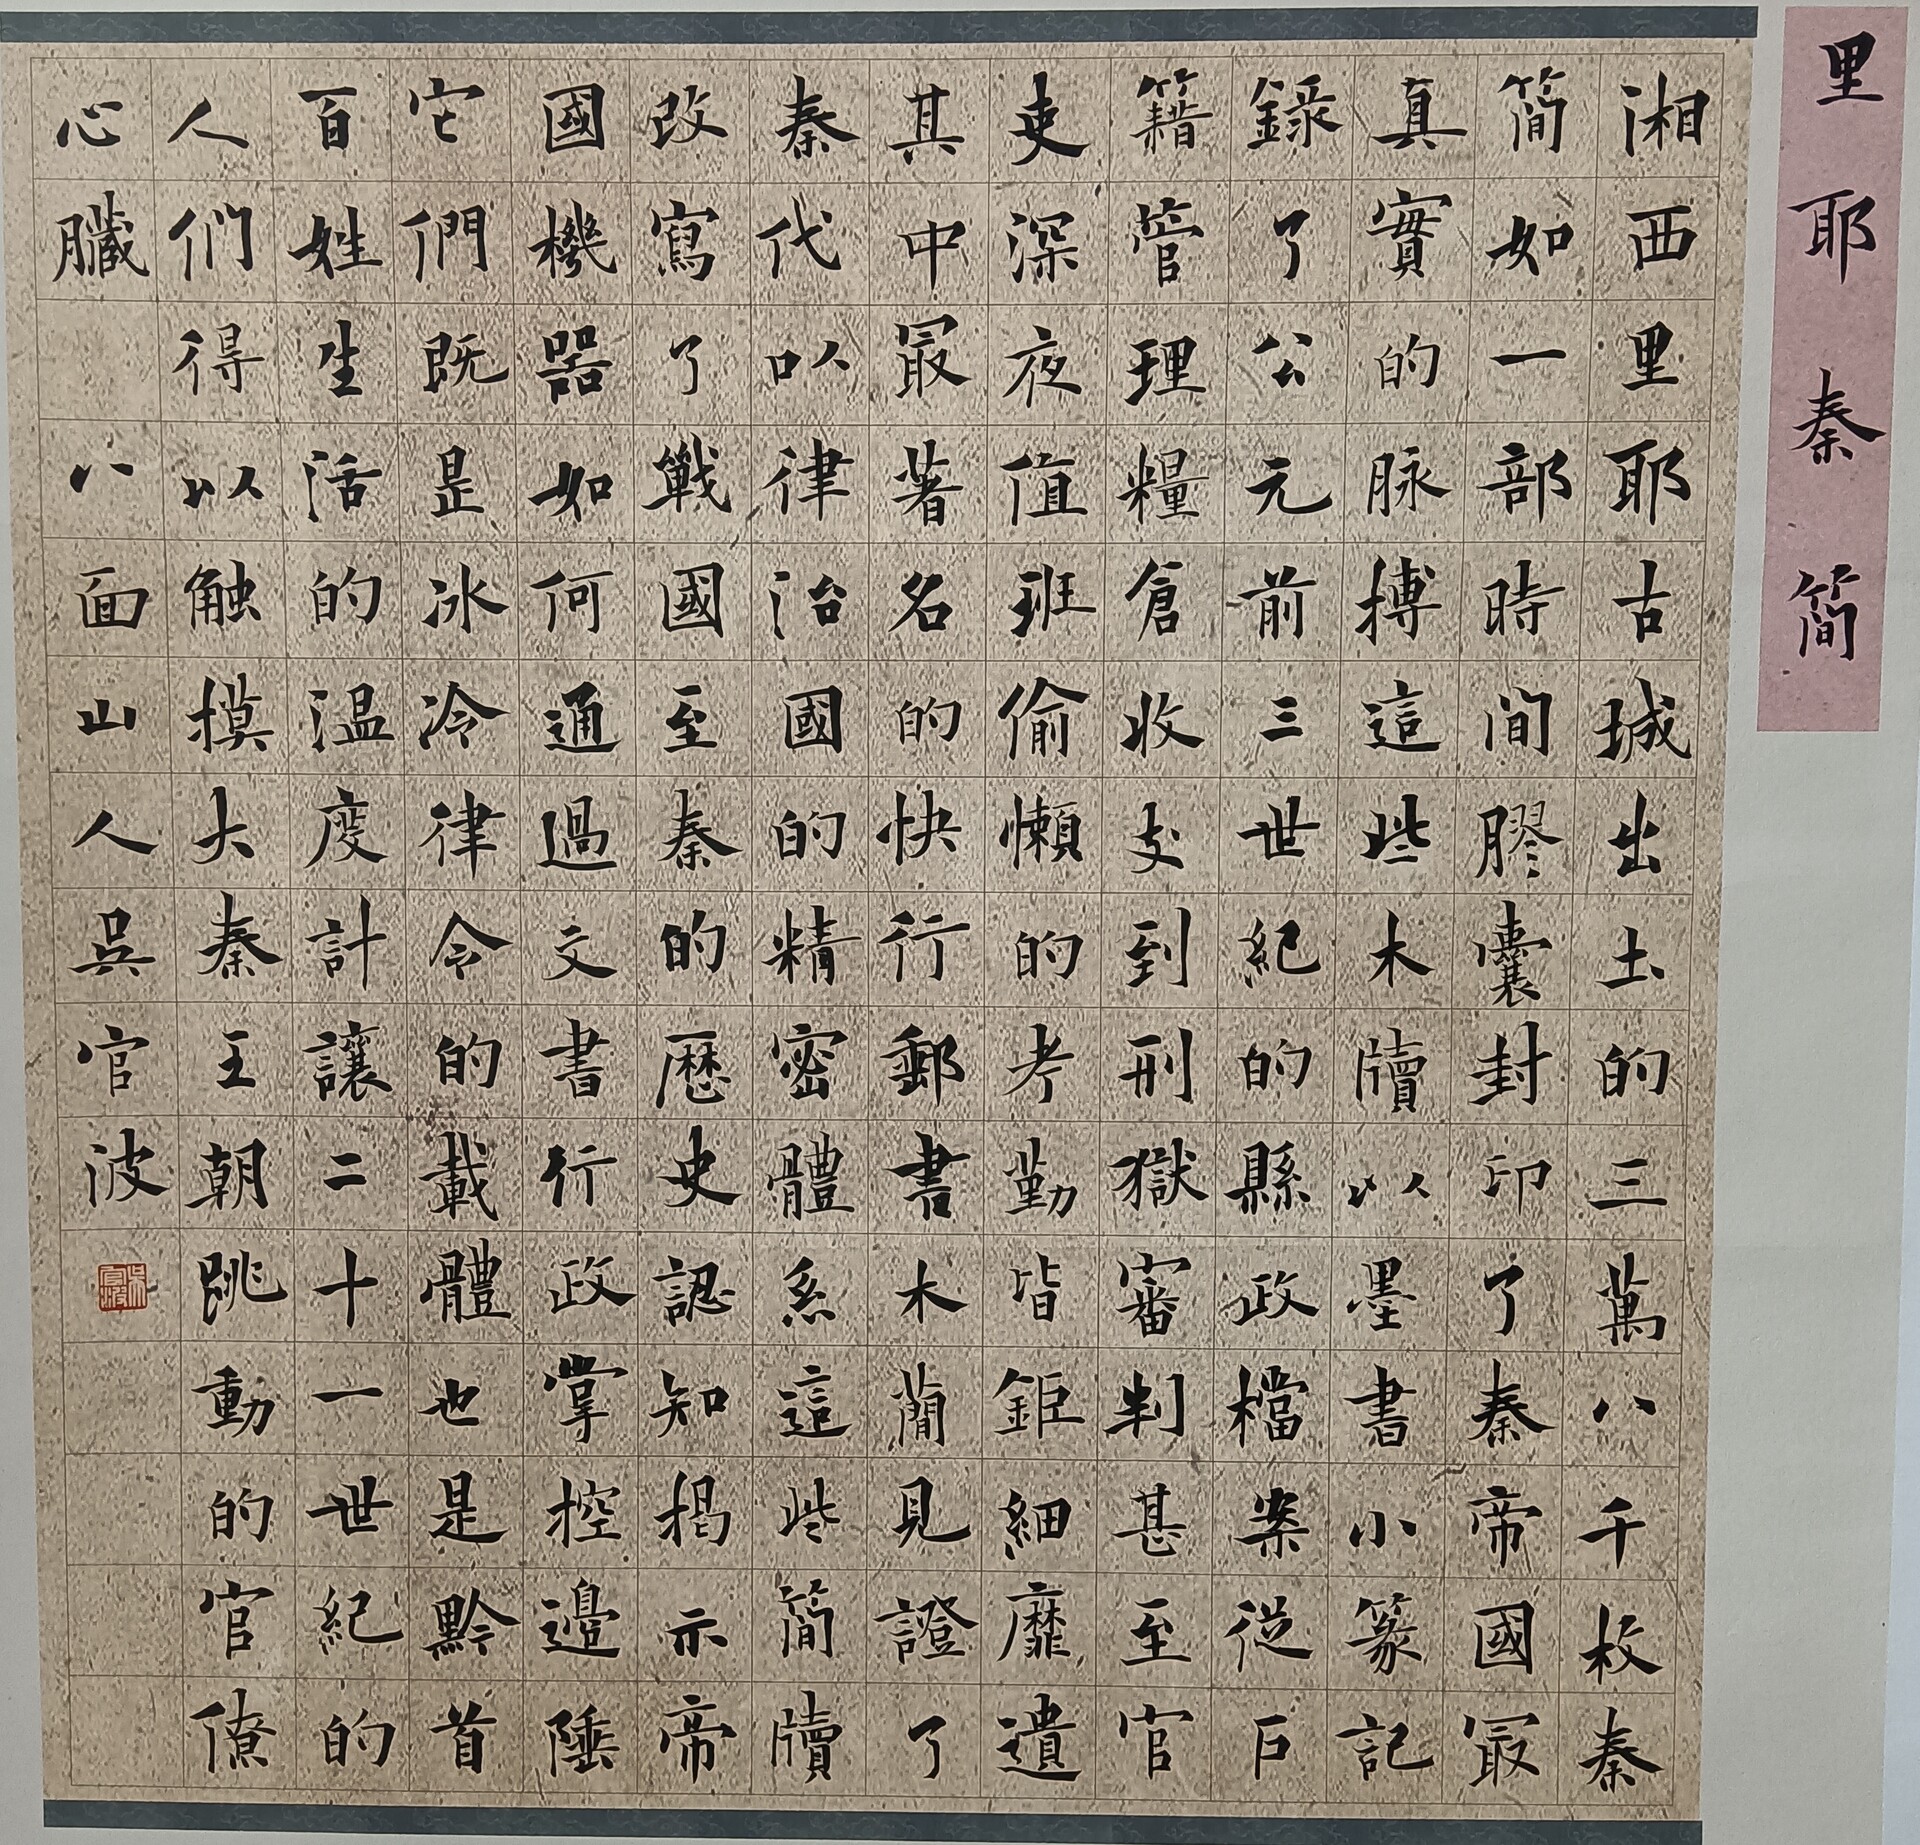 里耶秦簡
湘西里耶古城出土的三萬八千枚秦
簡如一部時間膠囊封印了秦帝國最
真實的脉搏這些木牘以墨書小篆記
錄了公元前三世紀的縣政檔案從戶
籍管理糧倉收支到刑獄審判甚至官
吏深夜值班偷懶的考勤皆鉅細靡遺
其中最著名的快行郵書木蕳見證了
秦代以律治國的精密體系這些簡牘
改寫了戰國至秦的歷史認知揭示帝
國機器如何通過文書行政掌控邊陲
它們既是冰冷律令的載體也是黔首
百姓生活的温度計讓二十一世紀的
人们得以触摸大秦王朝跳動的官僚
心臟
八面山人吳官波
吳官波